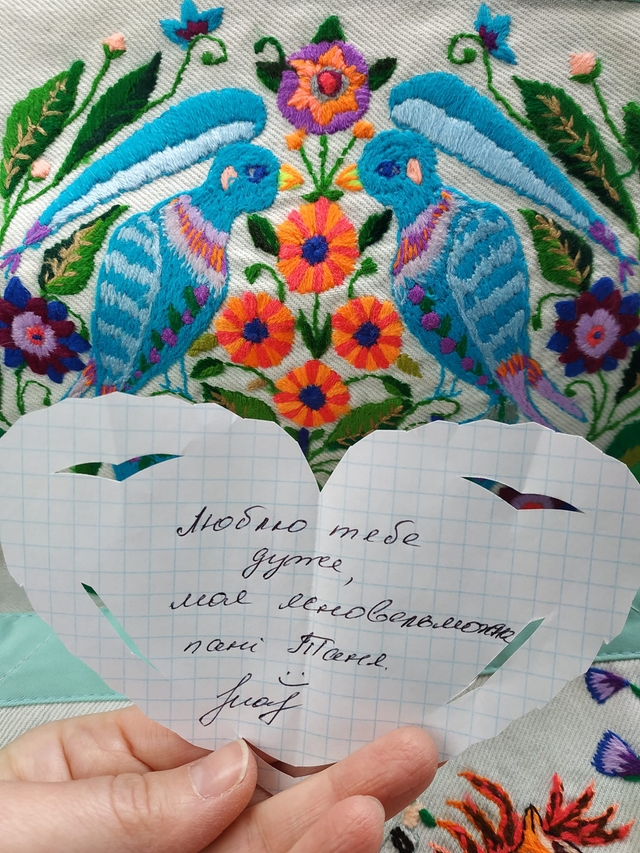 Люблю тебе
дуже,
моя ясновельможна
пані Таня.